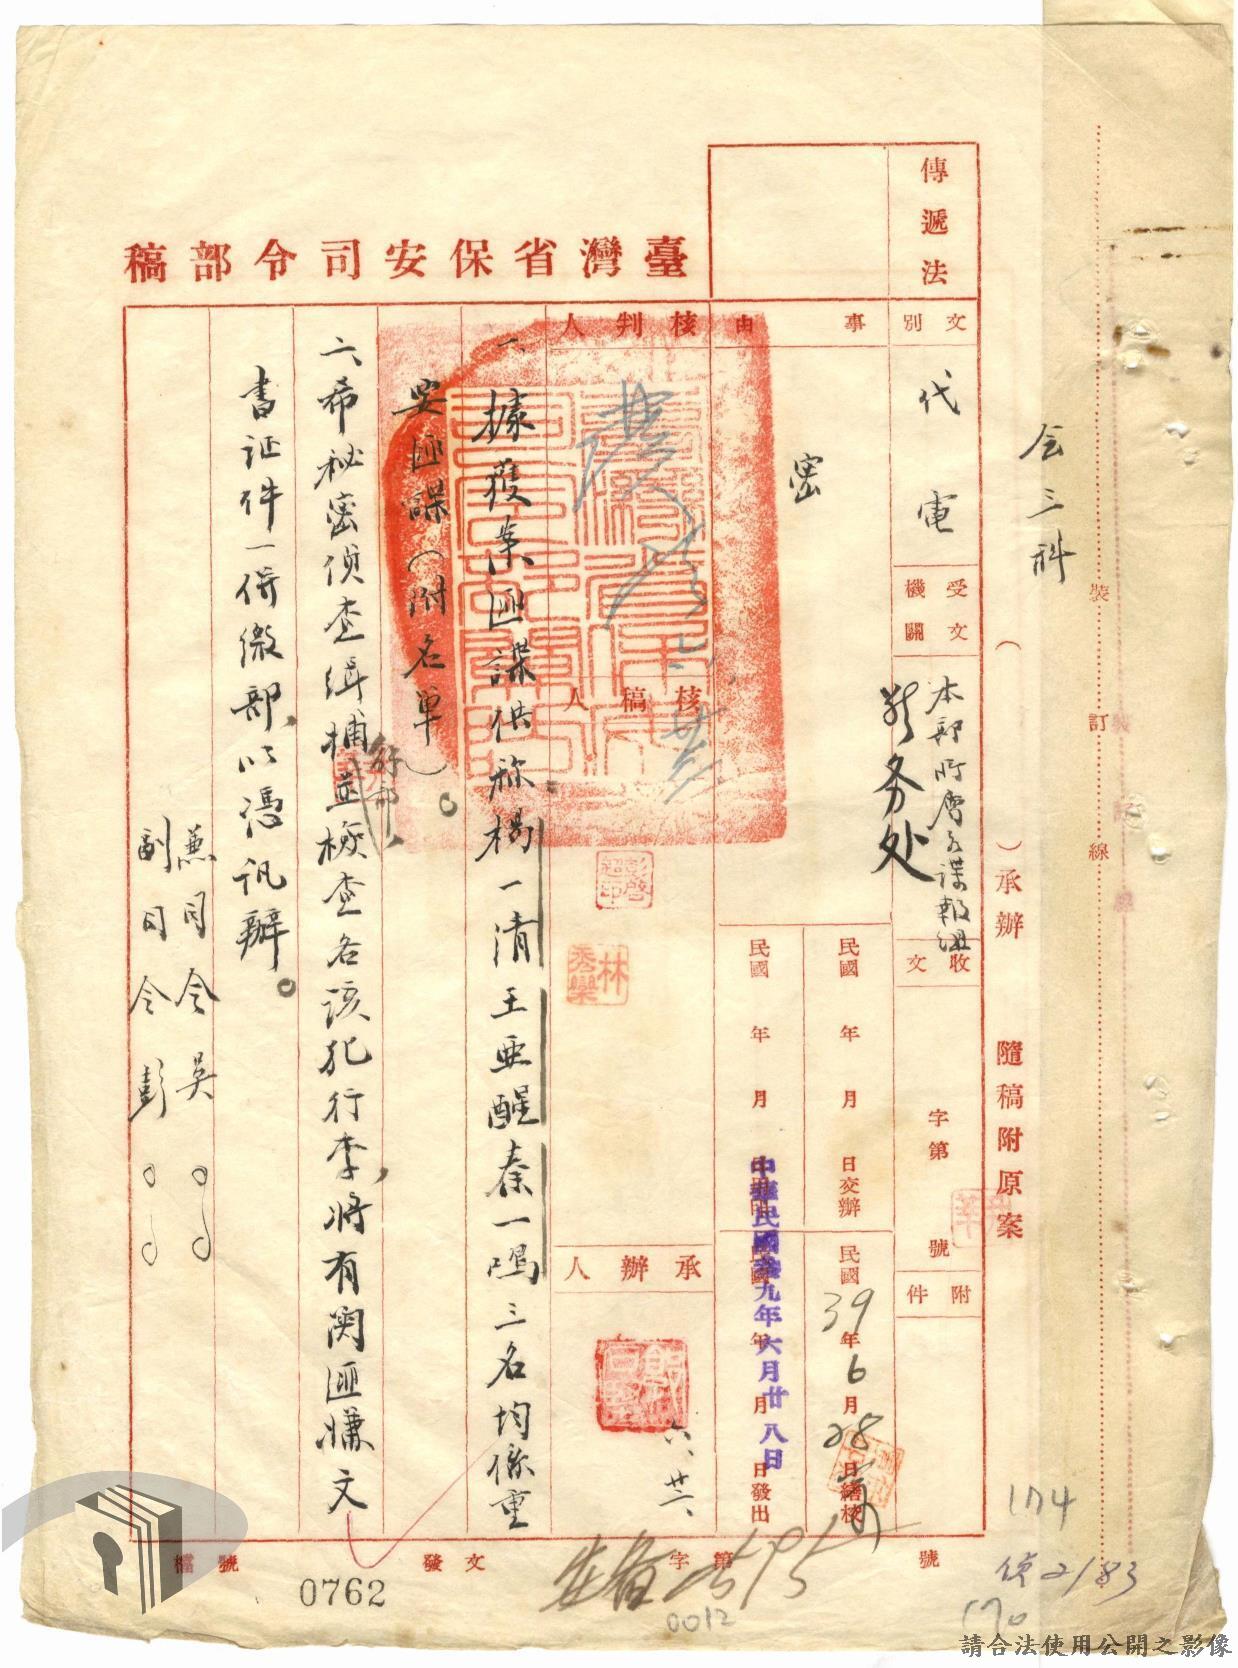 傳遞法
臺灣省保安司令部稿
文別
代電
受文機關
本部所屬各諜報組
勞务处
收文
字第
號
附件
事由
密
民國 年 月 日交辦
民國39年6月28日繕校
民國 年 月 日
民國 年 月 日發出
中華民國叁九年六月廿八日
核判人
核稿人
彭啓超印
林秀欒
承辦人
六、廿六、
一、據獲案匪諜供称楊一清王亜醒秦一鳴三名均係重
要匪諜(附名單)。
二、希秘密偵查緝捕解部，並檢查各該犯行李，將有関匪嫌文
書证件一併繳部，以憑讯辦。
兼司令吳
副司令彭
會三科
( )承辦
隨稿附原案
裝
訂
線
檔號
0762
發文
安
字第
2595
號
0012
174
偵2183
170
請合法使用公開之影像